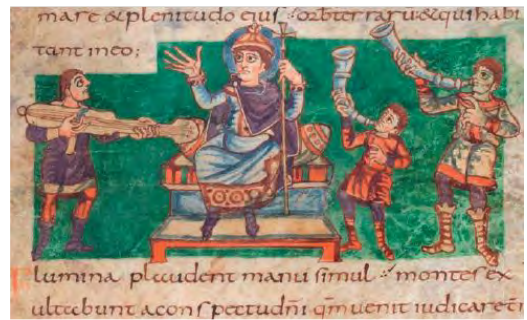 mare & plenitudo eius : orbis terrarū & qui habi
tant in eo;
Flumina plaudent manu simul : montes ex
ultabunt a conspectu dn̄i qm̄ uenit iudicare